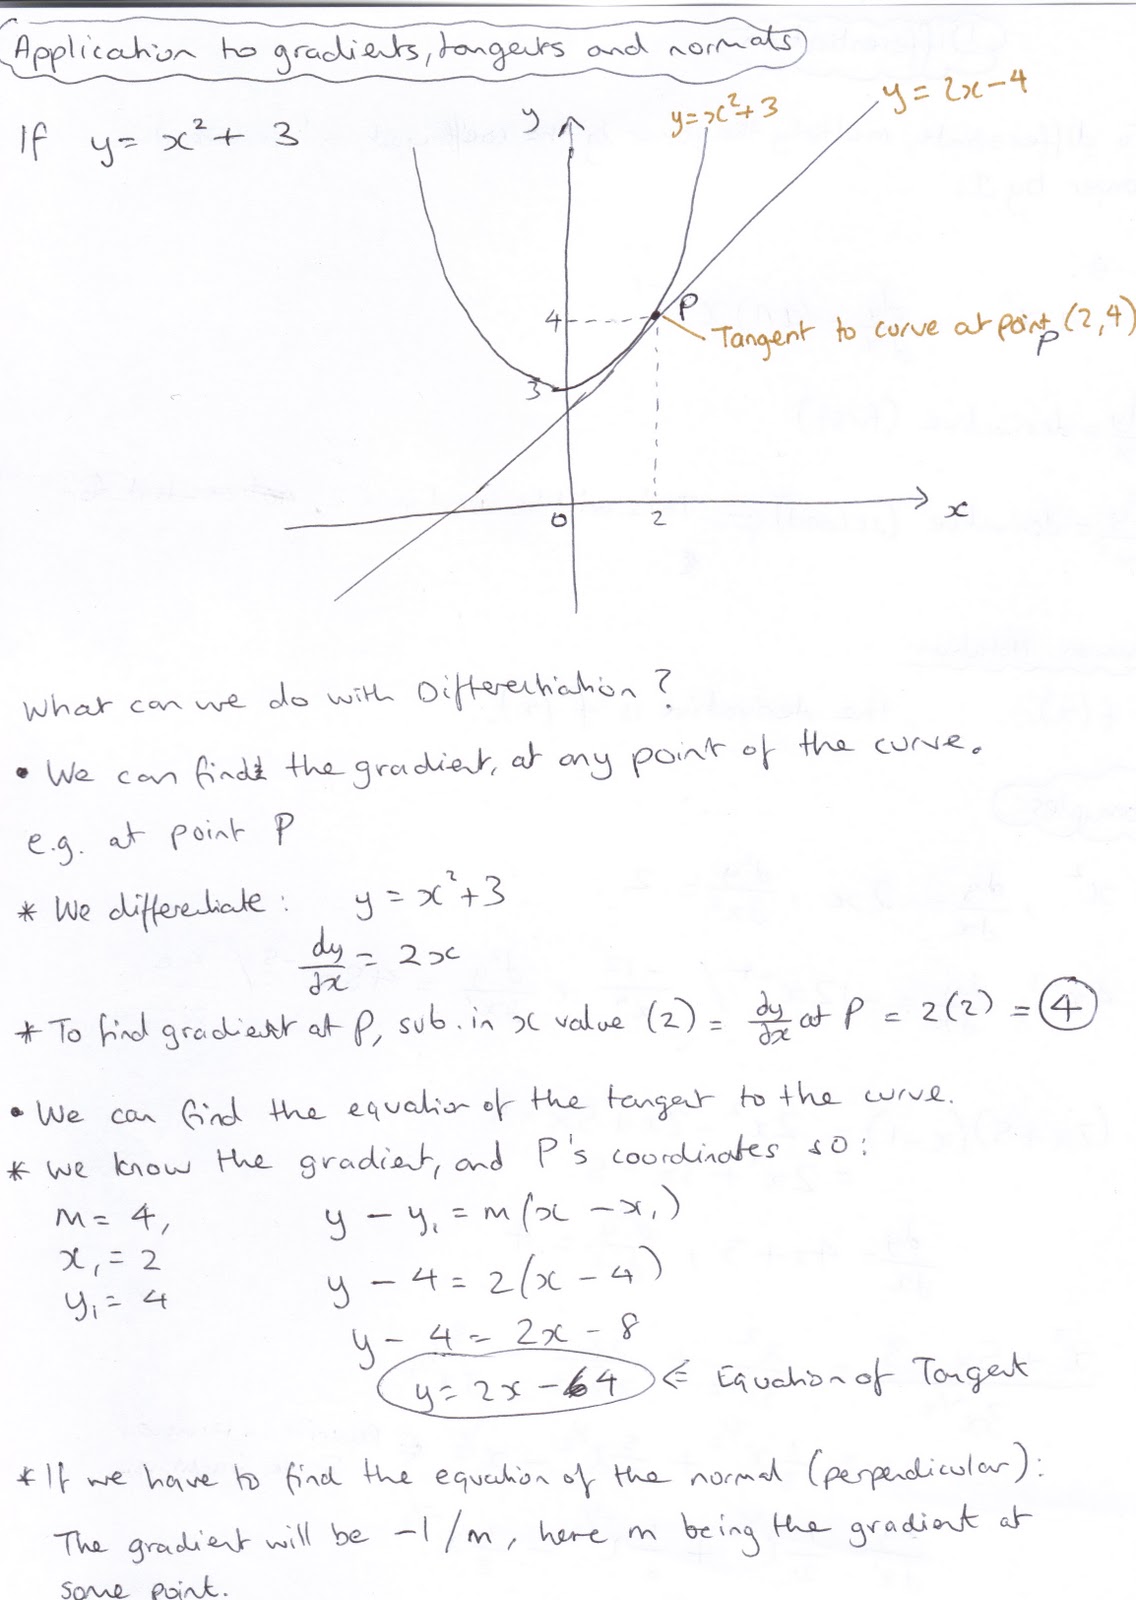 Application to gradients, tangents and normals
If y = x² + 3
y
y = x² + 3
y = 2x - 4
P
4
Tangent to curve at point P (2,4)
3
0
2
x
What can we do with Differentiation?
• We can find the gradient, at any point of the curve.
e.g. at point P
* We differentiate: y = x² + 3
dy/dx = 2x
* To find gradient at P, sub. in x value (2) = dy/dx at P = 2(2) = 4
• We can find the equation of the tangent to the curve.
* We know the gradient, and P's coordinates so:
m = 4, y - y₁ = m(x - x₁)
x₁ = 2
y - 4 = 2(x - 4)
y₁ = 4
y - 4 = 2x - 8
y = 2x - 4 ⇐ Equation of Tangent
* If we have to find the equation of the normal (perpendicular):
The gradient will be -1/m, here m being the gradient at
some point.